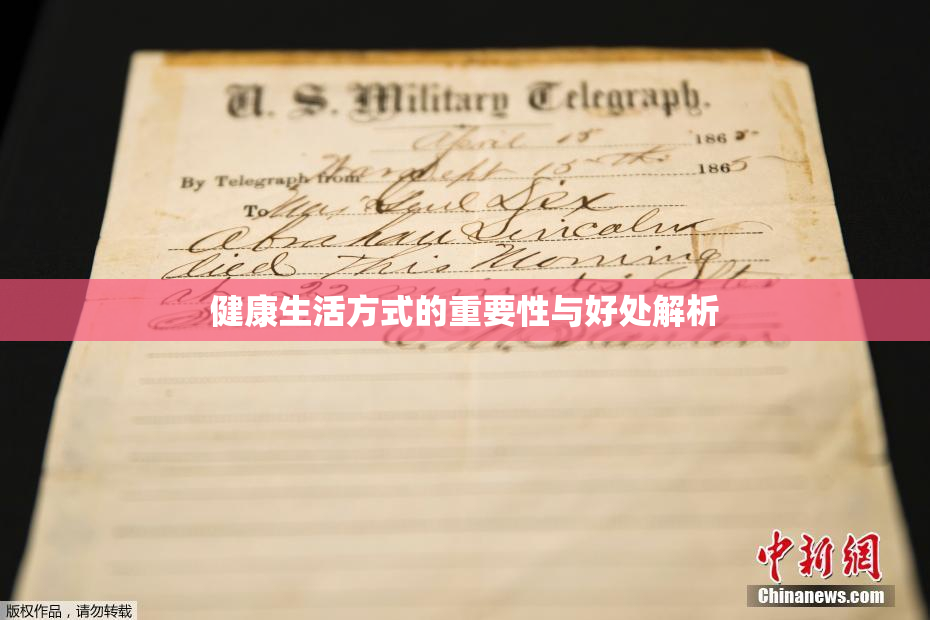 U. S. Military Telegraph.
April 15 1865
By Telegraph from War Dept 15th 1865
To Maj Genl Dix
Abraham Lincoln
died This Morning
at 22 minutes after
健康生活方式的重要性与好处解析
E. M. Stanton
中新网
Chinanews.com
版权作品,请勿转载